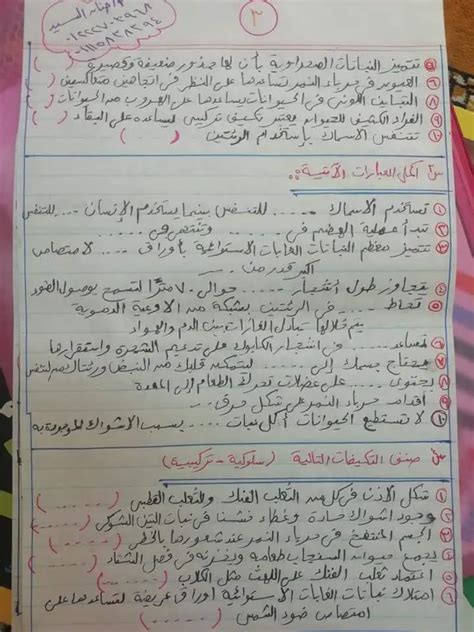 ٣
أ/هناء السيد
٦ تتميز النباتات الصحراوية بأن لها جذور ضعيفة وقصيرة ( )
٧ العيون في حرباء النمر تساعدها على النظر في اتجاهين متعاكسين ( )
٨ التباين اللوني في الحيوانات يساعدها على الهروب من الحيوانات ( )
٩ الفراء الكثيف للحيوان يعتبر تكيف تركيبي ليساعده على البقاء ( )
١٠ تتنفس الأسماك بإستخدام الرئتين ( )
س٢ أكمل العبارات الآتية :-
١ تستخدم الأسماك ..... للتنفس بينما يستخدم الإنسان .... للتنفس
٢ تبدأ عملية الهضم في ..... وتنتهي في ....
٣ تتميز معظم النباتات الغابات الاستوائية بأوراق ..... لامتصاص
أكبر قدر من .....
٤ يتجاوز طول أشجار ..... حوالي .. مترًا لتسمح بوصول الضوء
٥ تحاط ..... في الرئتين بشبكة من الأوعية الدموية
يتم خلالها تبادل الغازات بين الدم والهواء
٦ تساعد ..... في أشجار الكابوك على تدعيم الشجرة واستقرارها
٧ يحتاج جسمك إلى ..... ليتمكن قلبك من النبض ورئتاك من التنفس
٨ يحتوي ..... على عضلات تحرك الطعام إلى المعدة
٩ أقدام حرباء النمر على شكل حرف ..
١٠ لا تستطيع الحيوانات أكل نبات .... بسبب الأشواك الموجودة به
س٣ صنف التكيفات التالية (سلوكية - تركيبية)
١ شكل الأذن في كل من الثعلب الفنك والثعلب القطبي ( ..... )
٢ وجود أشواك حادة وغطاء خشنا في نبات التين الشوكي ( .... )
٣ الجسم المنتفخ في حرباء النمر عند شعورها بالخطر ( ..... )
٤ يجمع حيوان السنجاب طعامه ويخزنه في فصل الشتاء ( ..... )
٥ اعتماد ثعلب الفنك على اللهث مثل الكلاب ( ..... )
٦ امتلاك نباتات الغابات الاستوائية أوراق عريضة لتساعدها على
امتصاص ضوء الشمس ( ..... )